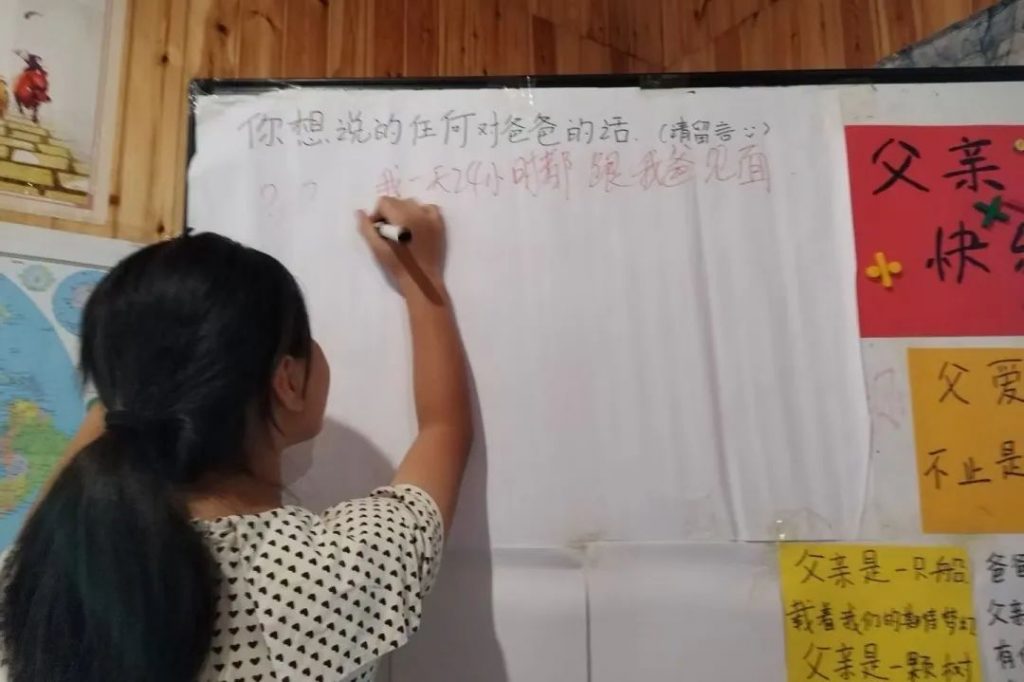 你想说的任何对爸爸的话.(請留言:)
? ? 我一天24小时都跟我爸见面.
父亲
快
父爱
不止是
父亲是一只船
载着我们的
父亲是一颗树
爸爸
父亲
有